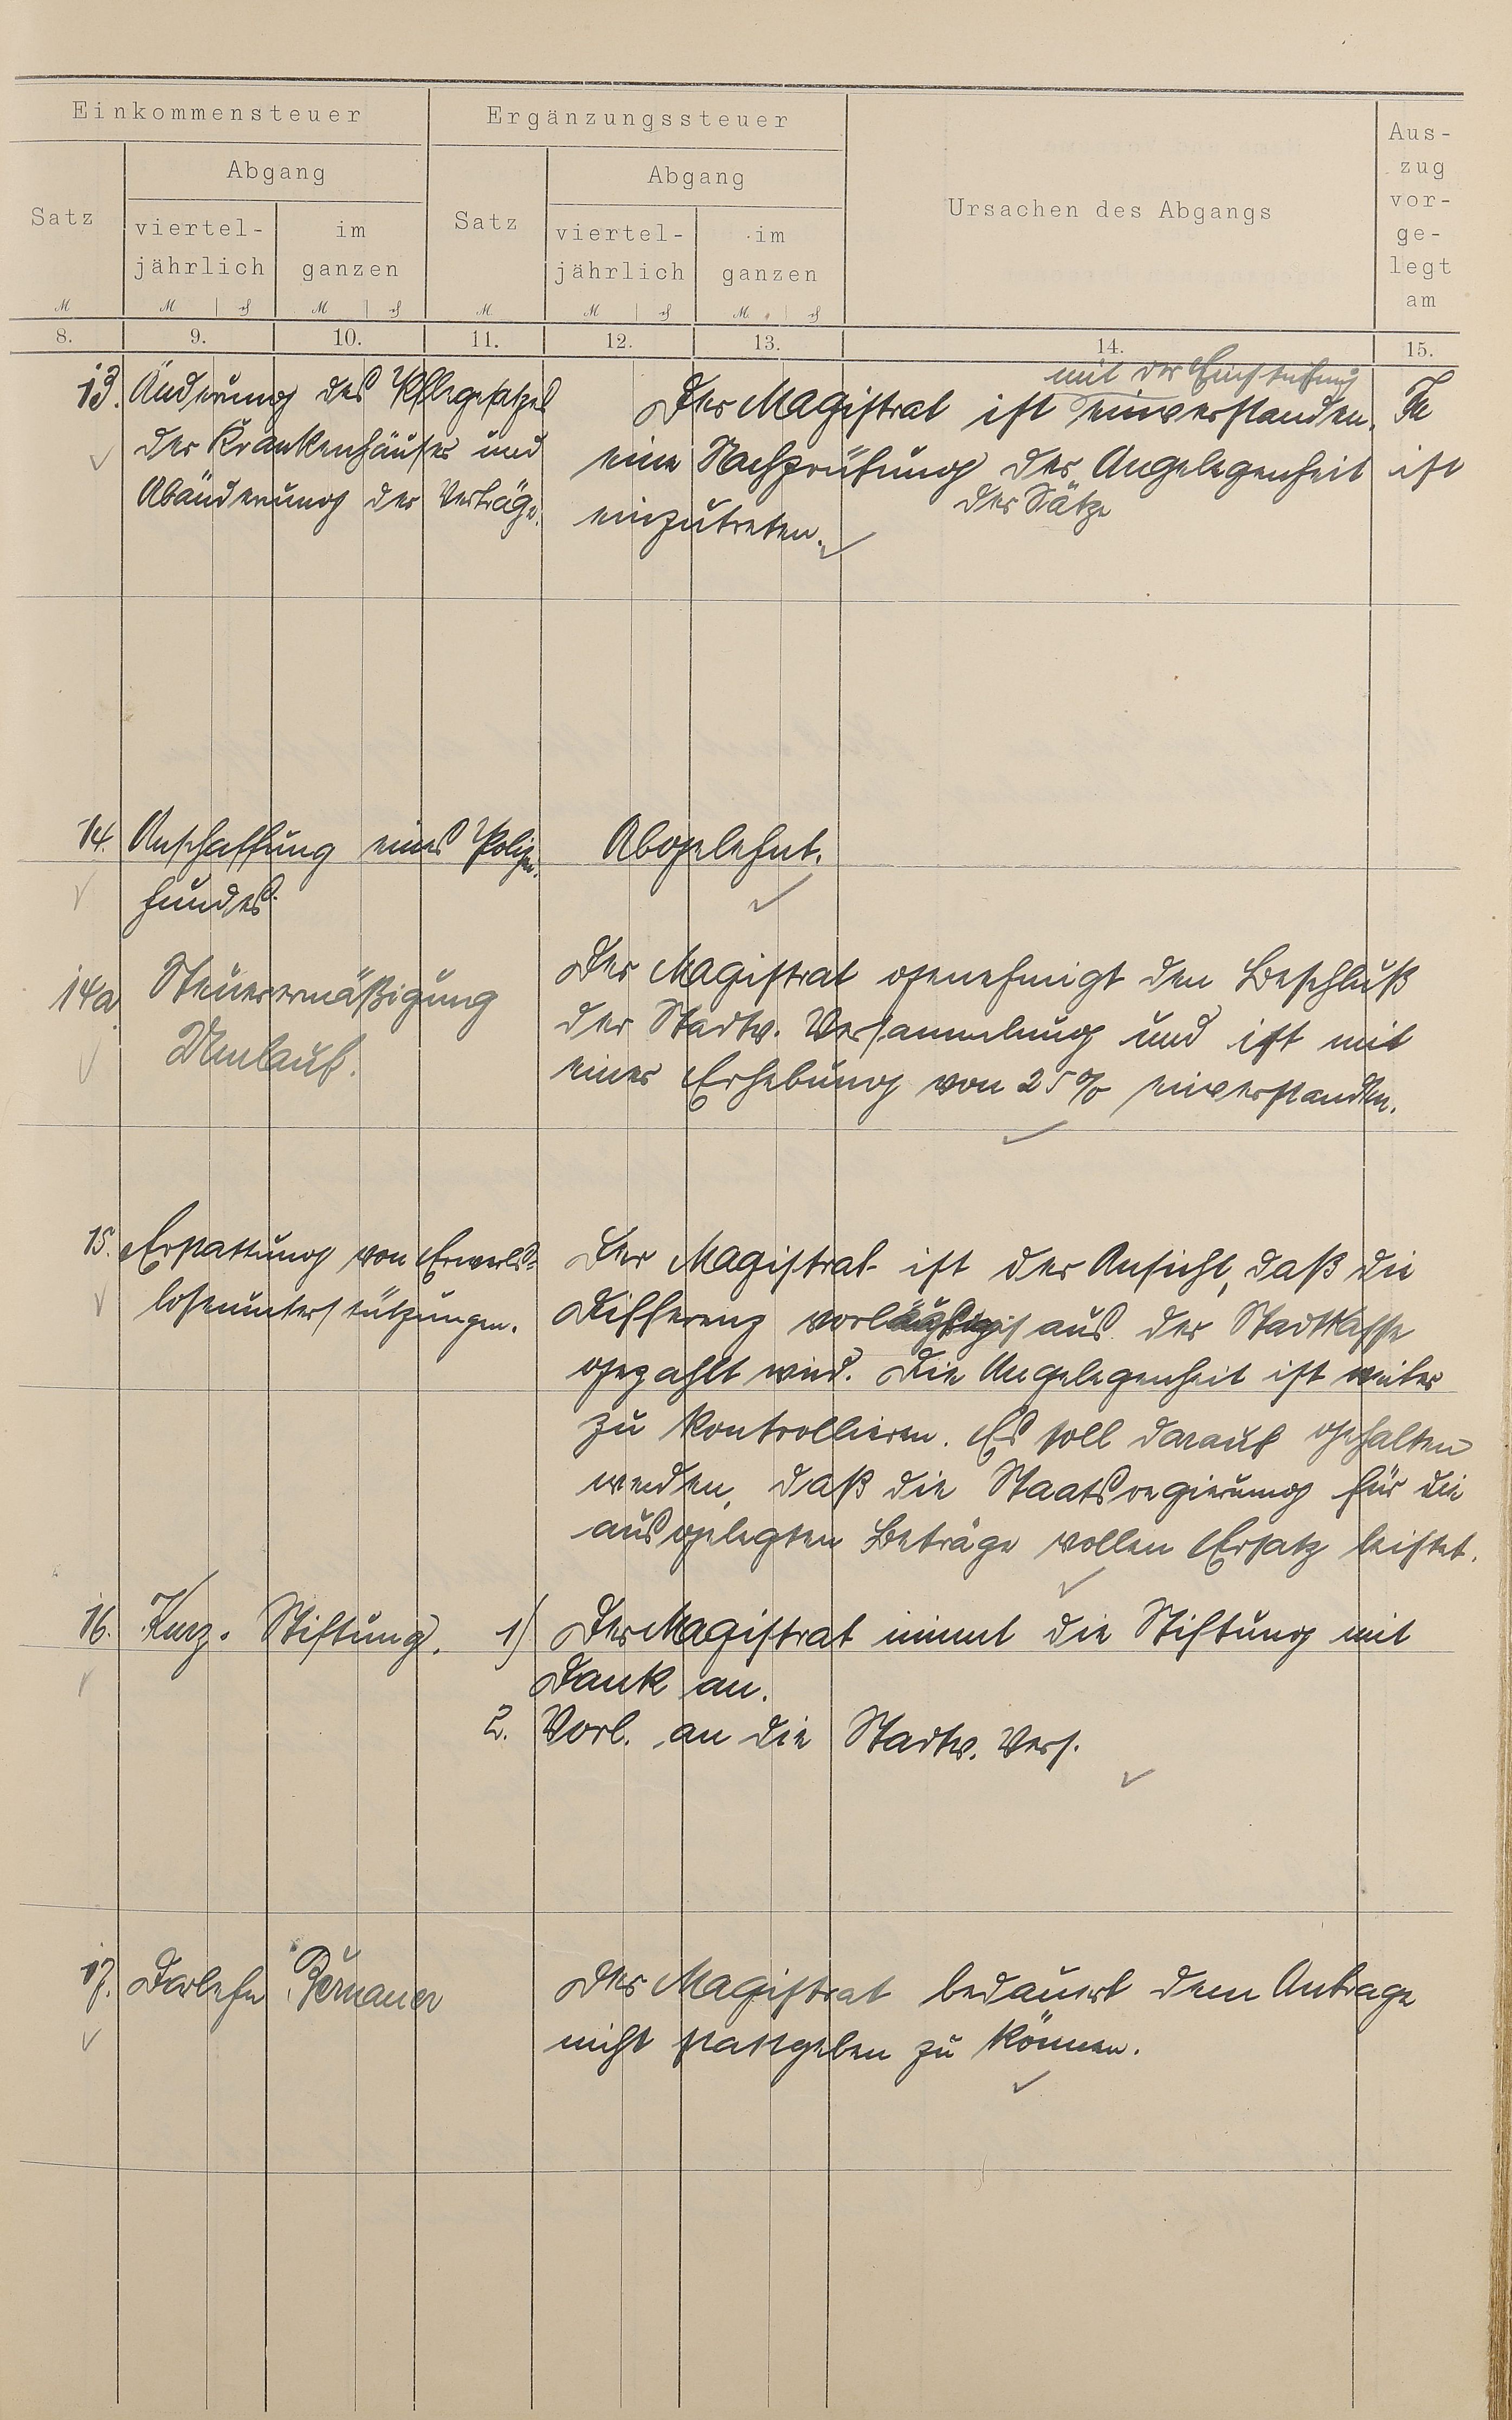 Einkommensteuer
Ergänzungssteuer
Ursachen des Abgangs
Aus-
zug
vor-
ge-
legt
am
Satz
Abgang
viertel-
jährlich
im
ganzen
Satz
Abgang
viertel-
jährlich
im
ganzen
M
M
M
M
M
M
8.
9.
10.
11.
12.
13.
14.
15.
13. Änderung des Pflegesatzes
der Krankenhäuser und
Abänderung der Verträge.
mit der Einstufung
Der Magistrat ist einverstanden. In
eine Nachprüfung der Angelegenheit ist
der Sätze
einzutreten.
14. Anschaffung eines Polizei-
hundes.
Abgelehnt.
14a Steuerermäßigung
Umlauf.
Der Magistrat genehmigt den Beschluß
der Stadtv. Versammlung und ist mit
einer Erhebung von 25% einverstanden.
15. Erstattung von Erwerbs-
losenunterstützungen.
Der Magistrat ist der Ansicht, daß die
Differenz vorläufig aus der Stadtkasse
gezahlt wird. Die Angelegenheit ist weiter
zu kontrollieren. Es soll darauf gehalten
werden, daß die Staatsregierung für die
ausgelegten Beträge vollen Ersatz leistet.
16. Kurz. Stiftung.
1) Der Magistrat nimmt die Stiftung mit
Dank an.
2. Vorl. an die Stadtv. Vers.
17. Darlehn
Der Magistrat bedauert dem Antrage
nicht stattgeben zu können.